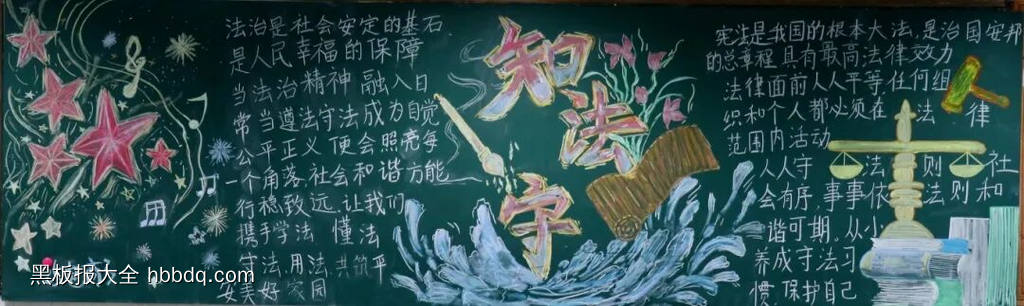 法治是社会安定的基石
是人民幸福的保障
当法治精神 融入日
常 当遵法守法成为自觉
公平正义 便会照亮每
一个角落,社会和谐方能
行稳致远,让我们
携手学法 懂法
守法,用法 共筑平
安美好家园
知
法
守
宪法是我国的根本大法,是治国安邦
的总章程 具有最高法律效力
法律面前人人平等,任何组
织和个人 都必须在 法 律
范围内活动
人人守 法 则 社
会有序,事事依 法 则 和
谐可期。从小
养成守法习
惯,保护自己
黑板报大全 hbbdq.com